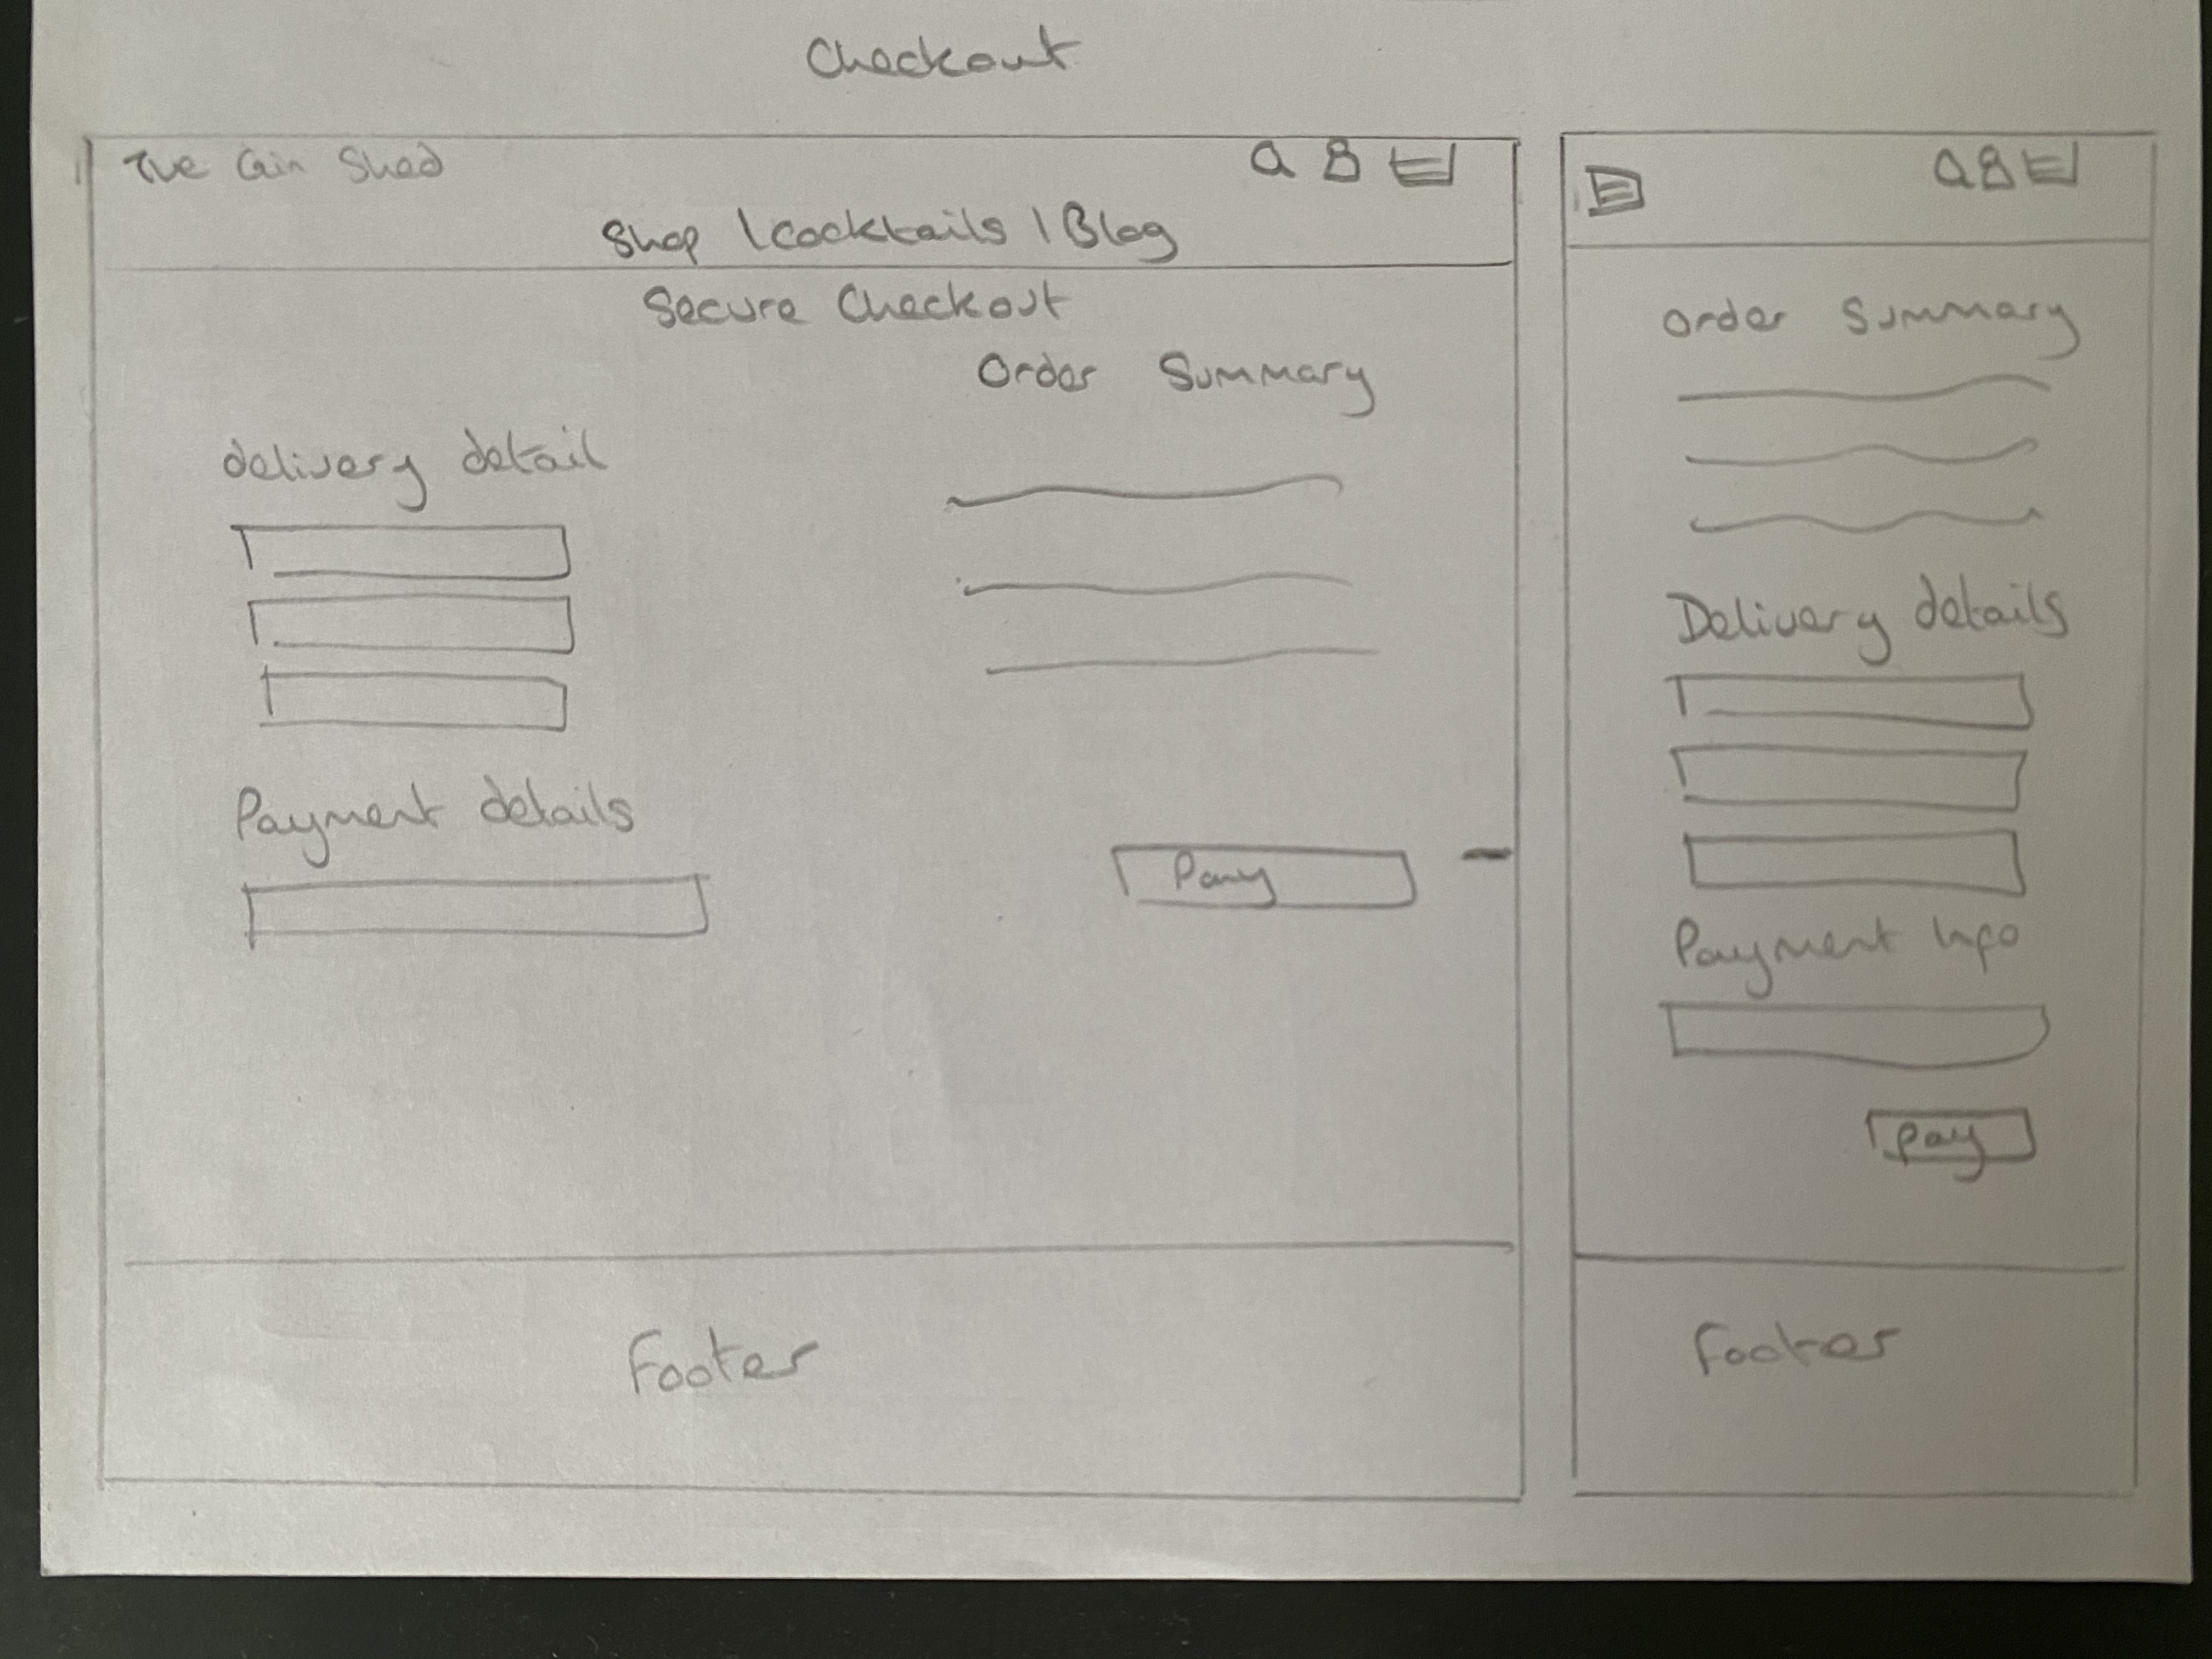 Checkout
The Gin Shed
Shop | Cocktails | Blog
Secure Checkout
Order Summary
delivery detail
Payment details
Pay
Footer
Order Summary
Delivery details
Payment Info
Pay
Footer